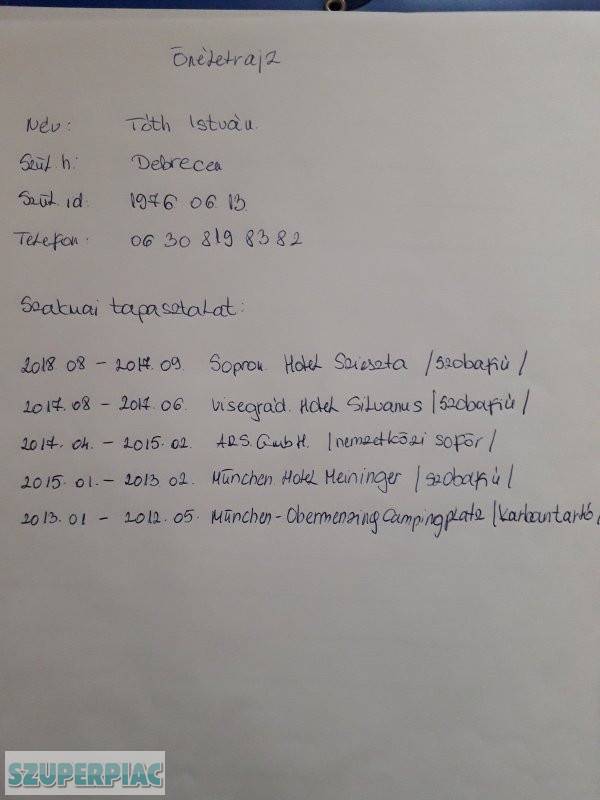 Önéletrajz
Név: Tóth István.
Szül. h: Debrecen
Szül. id: 1976 06 13.
Telefon: 06 30 819 83 82
Szakmai tapasztalat:
2018 08 - 2017. 09. Sopron Hotel Szieszta /szobafiú/
2017. 08 - 2017. 06. Visegrád. Hotel Silvanus /szobafiú/
2017. 04. - 2015. 02. ARS. GmbH. /nemzetközi sofőr/
2015. 01. - 2013 02. München Hotel Meininger /szobafiú/
2013. 01 - 2012. 05. München-Obermenzing Campingplatz /karbantartó/
SZUPERPIAC